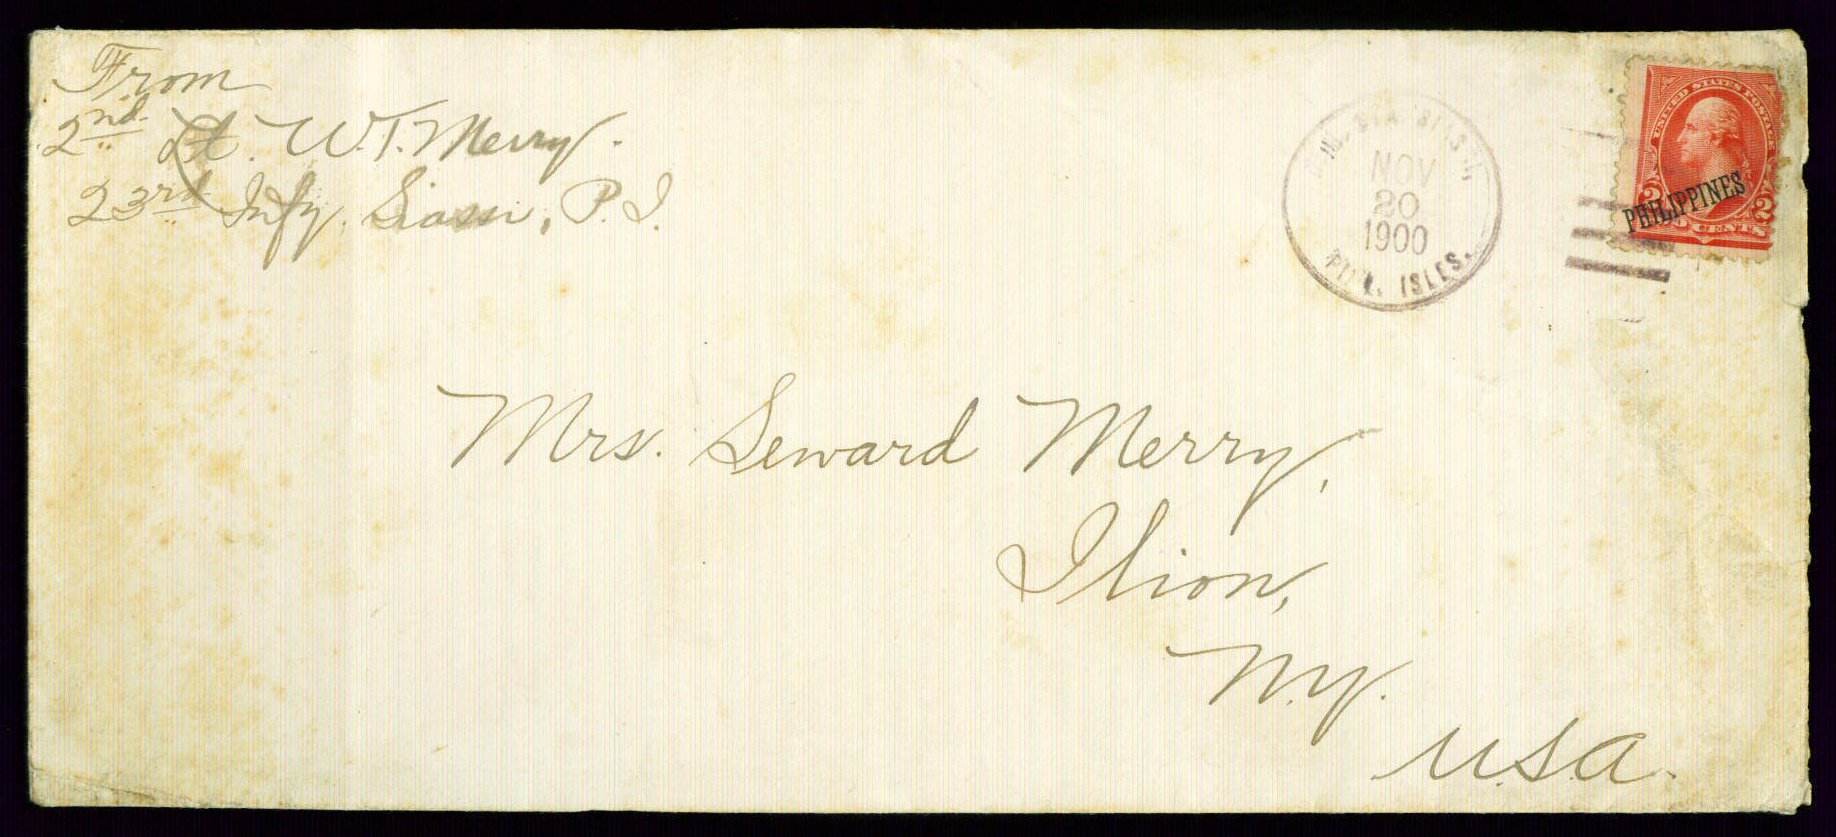 From
2nd Lt. W.T. Merry.
23rd Infy. Siassi, P.I.
NOV
20
1900
PHIL. ISLES.
UNITED STATES POSTAGE
PHILIPPINES
2 CENTS 2
Mrs. Seward Merry,
Ilion,
N.Y.
U.S.A.